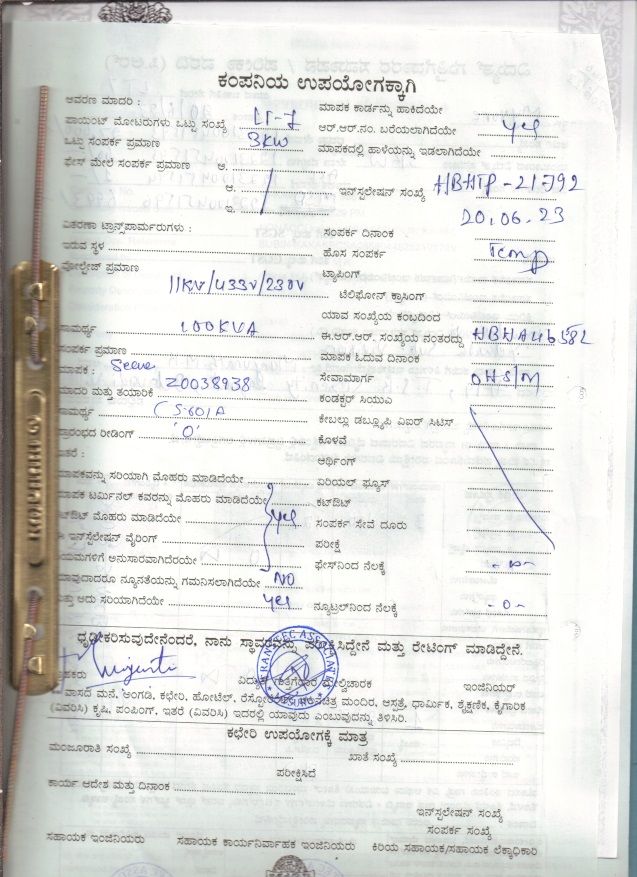 ಕಂಪನಿಯ ಉಪಯೋಗಕ್ಕಾಗಿ
ಆವರಣ ಮಾದರಿ : ಮಾಪಕ ಕಾರ್ಡನ್ನು ಹಾಕಿದೆಯೇ
ಪಾಯಿಂಟ್ ಮೋಟರುಗಳು ಒಟ್ಟು ಸಂಖ್ಯೆ LT-7 ಆರ್.ಆರ್.ನಂ. ಬರೆಯಲಾಗಿದೆಯೇ yes
ಒಟ್ಟು ಸಂಪರ್ಕ ಪ್ರಮಾಣ 3KW ಮಾಪಕದಲ್ಲಿ ಹಾಳೆಯನ್ನು ಇಡಲಾಗಿದೆಯೇ
ಫೇಸ್ ಮೇಲೆ ಸಂಪರ್ಕ ಪ್ರಮಾಣ ಆ.
ಆ. ಇನ್‌ಸ್ಟಲೇಷನ್ ಸಂಖ್ಯೆ HBHTP-21792
ಇ. 20.06.23
ವಿತರಣಾ ಟ್ರಾನ್ಸ್‌ಫಾರ್ಮರುಗಳು : ಸಂಪರ್ಕ ದಿನಾಂಕ
ಇರುವ ಸ್ಥಳ ಹೊಸ ಸಂಪರ್ಕ Temp
ವೋಲ್ಟೇಜ್ ಪ್ರಮಾಣ ಟ್ಯಾಪಿಂಗ್
11KV/433V/230V ಟೆಲಿಫೋನ್ ಕ್ರಾಸಿಂಗ್
ಯಾವ ಸಂಖ್ಯೆಯ ಕಂಬದಿಂದ
ಸಾಮರ್ಥ್ಯ 100KVA ಈ.ಆರ್.ಆರ್. ಸಂಖ್ಯೆಯ ನಂತರದ್ದು HBHA46582
ಸಂಪರ್ಕ ಪ್ರಮಾಣ ಮಾಪಕ ಓದುವ ದಿನಾಂಕ
ಮಾಪಕ : ಸೇವಾಮಾರ್ಗ OHS/M
ಮಾದರಿ ಮತ್ತು ತಯಾರಿಕೆ 20038938 ಕಂಡಕ್ಟರ್ ಸಿಯುಎ
ಸಾಮರ್ಥ್ಯ (5-60)A ಕೇಬಲ್ಲು ಡಬ್ಲ್ಯೂಪಿ ವಿಐರ್ ಸಿಟಿಸ್
ಪ್ರಾರಂಭದ ರೀಡಿಂಗ್ '0' ಕೊಳವೆ
ಇತರೆ : ಆರ್ಥಿಂಗ್
ಮಾಪಕವನ್ನು ಸರಿಯಾಗಿ ಮೊಹರು ಮಾಡಿದೆಯೇ ಏರಿಯಲ್ ಫ್ಯೂಸ್
ಮಾಪಕ ಟರ್ಮಿನಲ್ ಕವರನ್ನು ಮೊಹರು ಮಾಡಿದೆಯೇ ಕಟ್‌ಔಟ್
ಕಟ್‌ಔಟ್ ಮೊಹರು ಮಾಡಿದೆಯೇ yes ಸಂಪರ್ಕ ಸೇವೆ ದೂರು
ಈ ಇನ್‌ಸ್ಟಲೇಷನ್ ವೈರಿಂಗ್ ಪರೀಕ್ಷೆ
ನಿಯಮಗಳಿಗೆ ಅನುಸಾರವಾಗಿದೆಯೇ ಫೇಸ್‌ನಿಂದ ನೆಲಕ್ಕೆ
ಯಾವುದಾದರೂ ನ್ಯೂನತೆಯನ್ನು ಗಮನಿಸಲಾಗಿದೆಯೇ NO
ಮತ್ತು ಅದು ಸರಿಯಾಗಿದೆಯೇ yes ನ್ಯೂಟ್ರಲ್‌ನಿಂದ ನೆಲಕ್ಕೆ -0-
ಧೃಢೀಕರಿಸುವುದೇನೆಂದರೆ, ನಾನು ಸ್ಥಾವರವನ್ನು ಪರೀಕ್ಷಿಸಿದ್ದೇನೆ ಮತ್ತು ರೇಟಿಂಗ್ ಮಾಡಿದ್ದೇನೆ.
ಗ್ರಾಹಕರು ವಿದ್ಯುತ್ ಗುತ್ತಿಗೆದಾರ ಮೇಲ್ವಿಚಾರಕ ಇಂಜಿನಿಯರ್
ವಾಸದ ಮನೆ, ಅಂಗಡಿ, ಕಛೇರಿ, ಹೋಟೆಲ್, ಚಲನಚಿತ್ರ ಮಂದಿರ, ಆಸ್ಪತ್ರೆ, ಧಾರ್ಮಿಕ, ಶೈಕ್ಷಣಿಕ, ಕೈಗಾರಿಕೆ
(ವಿವರಿಸಿ) ಕೃಷಿ, ಪಂಪಿಂಗ್, ಇತರೆ (ವಿವರಿಸಿ) ಇದರಲ್ಲಿ ಯಾವುದು ಎಂಬುವುದನ್ನು ತಿಳಿಸಿರಿ.
ಕಛೇರಿ ಉಪಯೋಗಕ್ಕೆ ಮಾತ್ರ
ಮಂಜೂರಾತಿ ಸಂಖ್ಯೆ ಖಾತೆ ಸಂಖ್ಯೆ
ಪರೀಕ್ಷಿಸಿದೆ
ಕಾರ್ಯ ಆದೇಶ ಮತ್ತು ದಿನಾಂಕ
ಇನ್‌ಸ್ಟಲೇಷನ್ ಸಂಖ್ಯೆ
ಸಂಪರ್ಕ ಸಂಖ್ಯೆ
ಸಹಾಯಕ ಇಂಜಿನಿಯರು ಸಹಾಯಕ ಕಾರ್ಯನಿರ್ವಾಹಕ ಇಂಜಿನಿಯರು ಕಿರಿಯ ಸಹಾಯಕ/ಸಹಾಯಕ ಲೆಕ್ಕಾಧಿಕಾರಿ